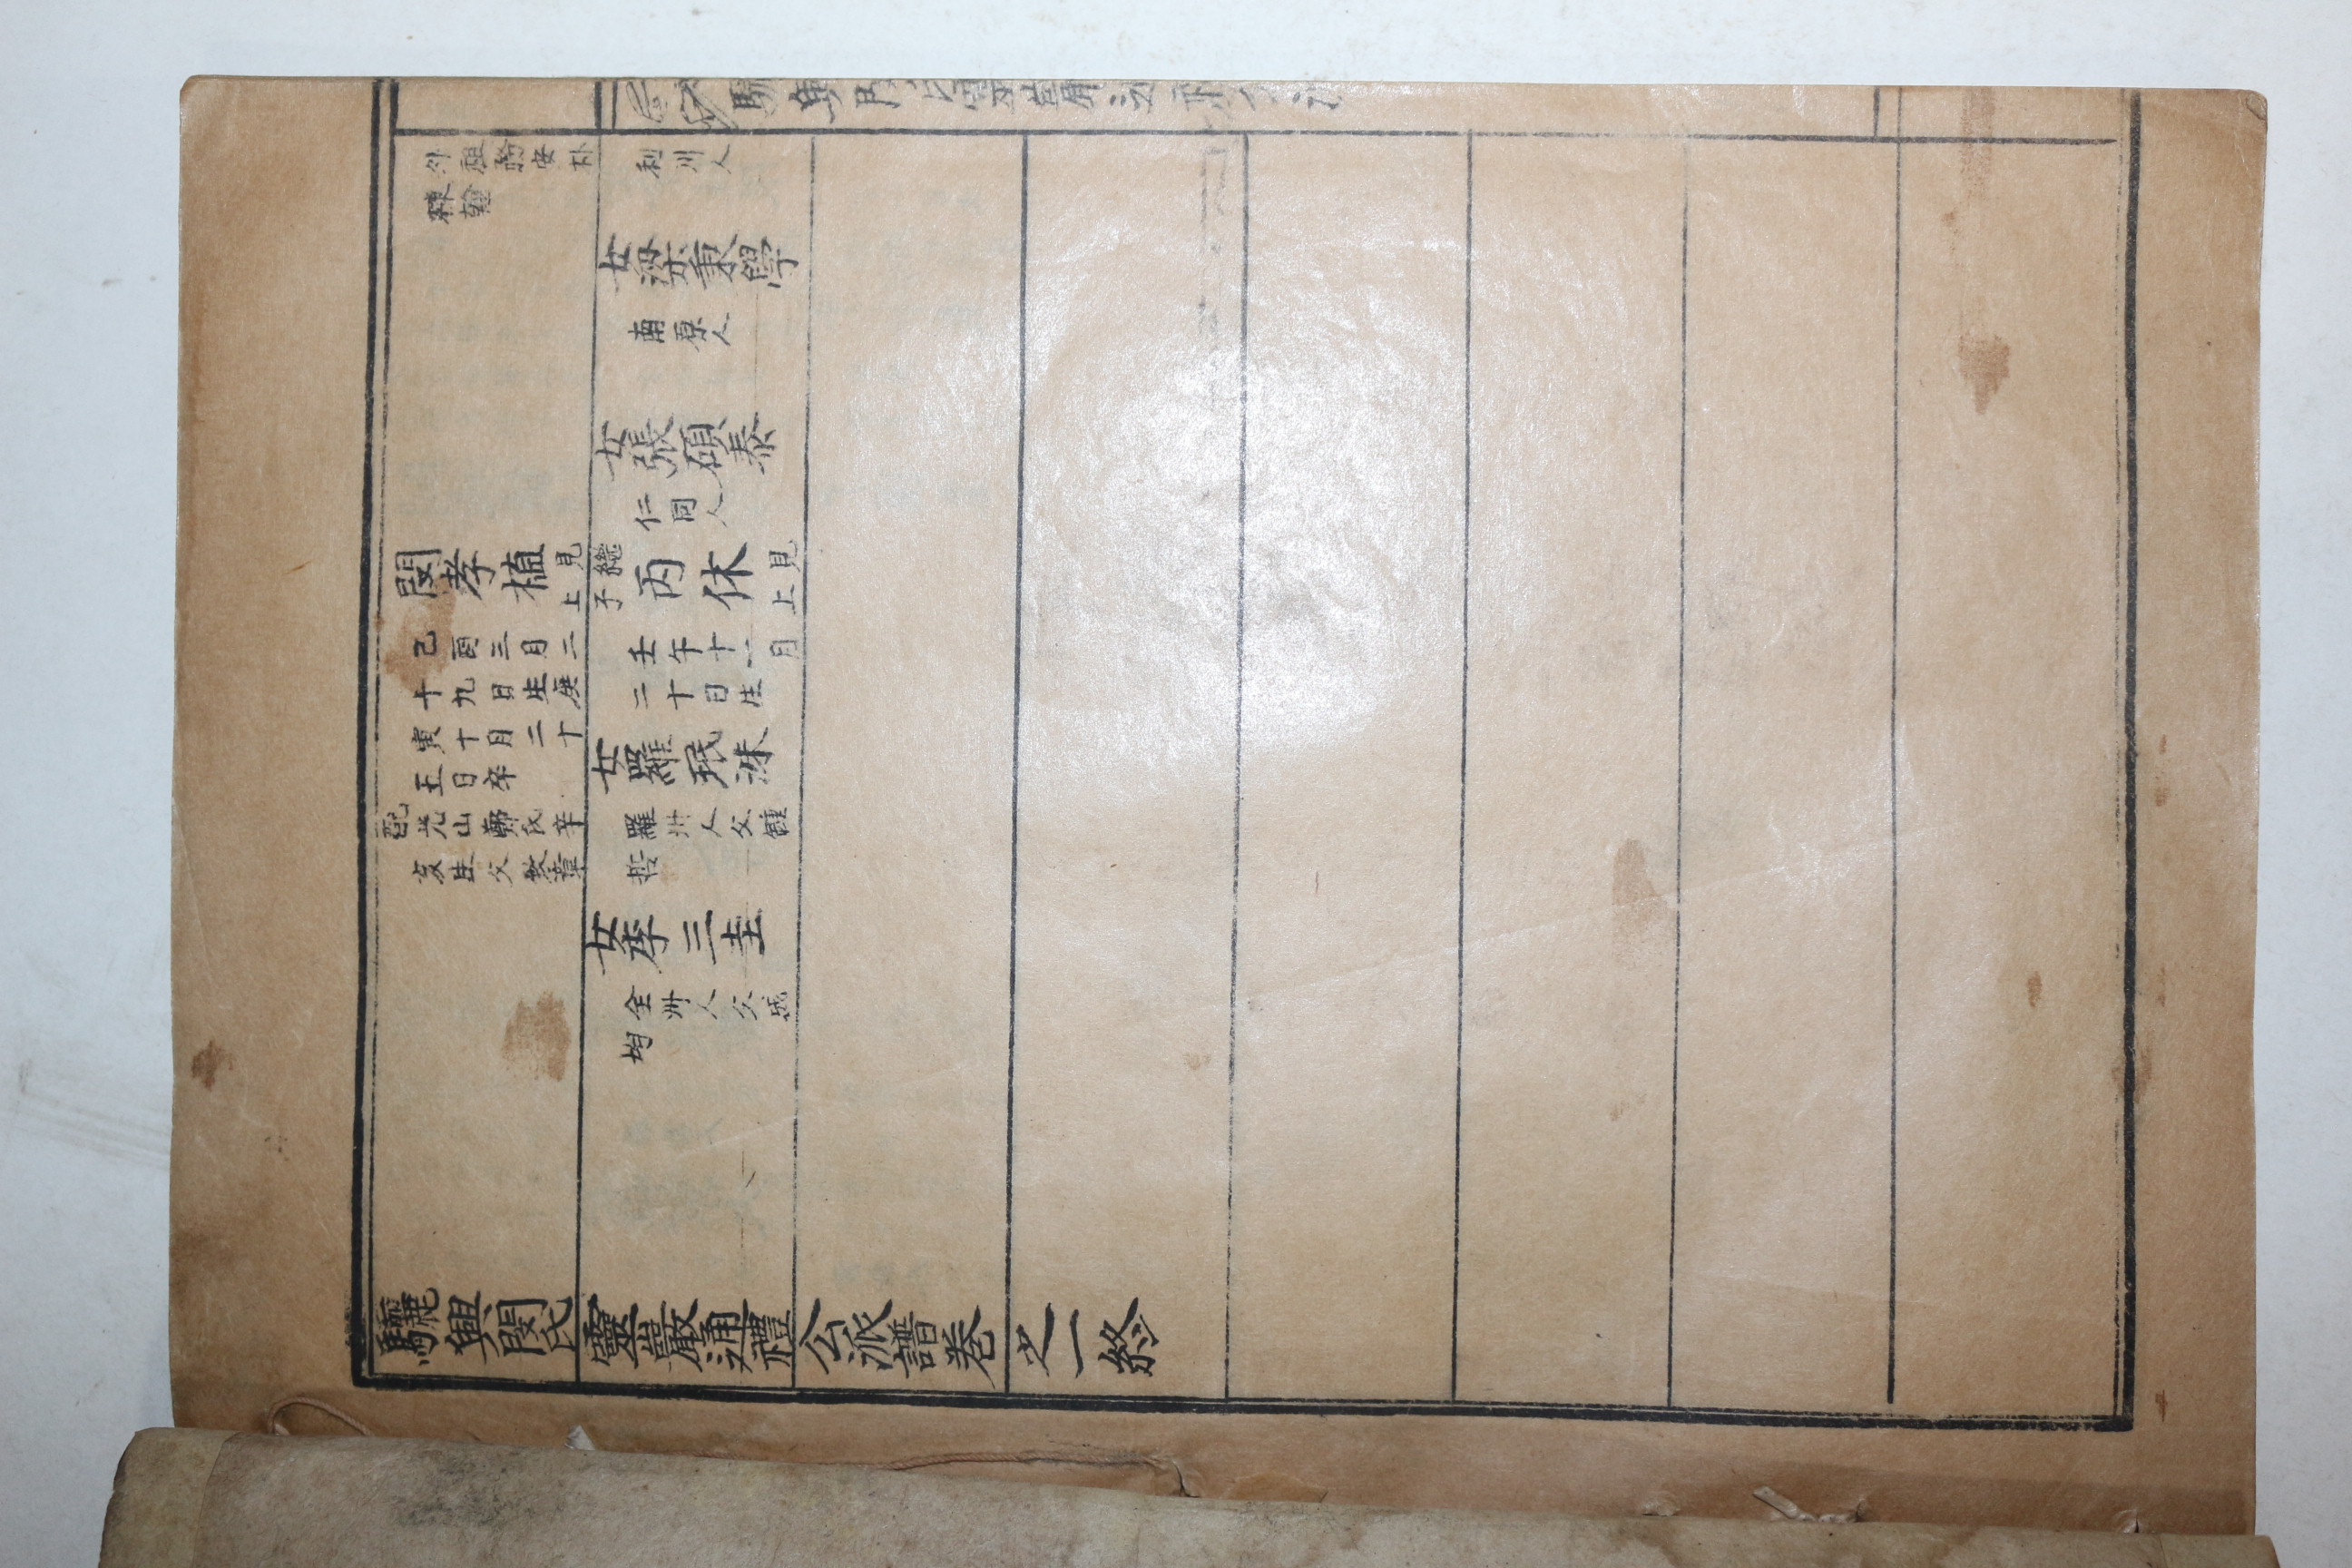 外祖務安朴
利川人
女梁秉學
南原人
女張碩泰
仁同人
閔孝植見上
己酉三月二
十九日生庚
寅十月二十
五日卒
配光山鄭氏辛
亥生父
繼子丙休見上
壬午十一月
二十日生
女羅珉洙
羅州人父鍾
哲
女李三圭
全州人父
均
驪興閔氏靈巖通禮公派譜卷之一終